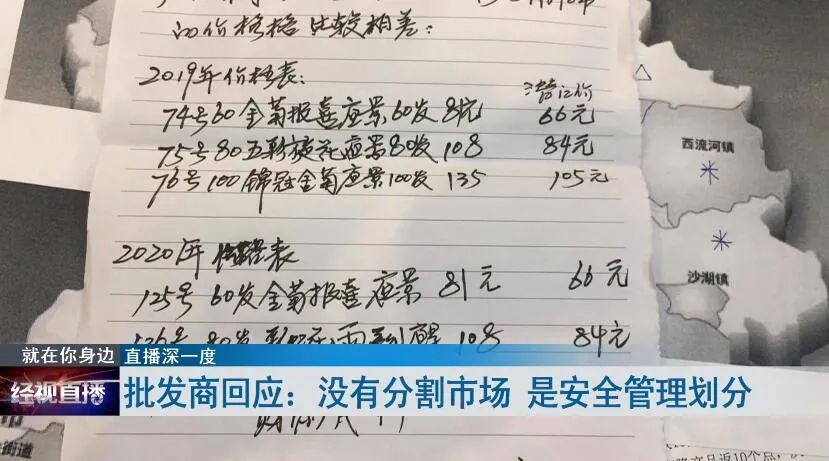 的价格格比较相差：
2019年价格表：
潜江价
74号60金菊报喜应景60发 81元 66元
75号80五彩 应景80发 108 84元
76号100锦冠金菊应景100发 135 105元
西流河镇
沙湖镇
2020年 表
125号 60发金菊报喜应景 81元 66元
126号 80发 108 84元
就在你身边 直播深一度
经视直播
批发商回应：没有分割市场 是安全管理划分
街道
产品返10个点